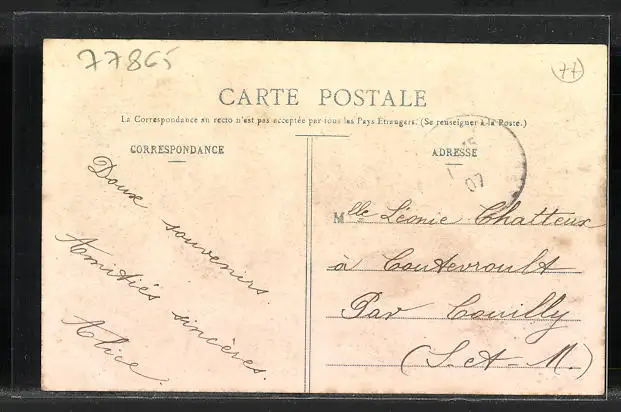 77865
77
CARTE POSTALE
La Correspondance au recto n'est pas acceptée par tous les Pays Etrangers. (Se renseigner à la Poste.)
CORRESPONDANCE
ADRESSE
15
07
Doux souvenirs.
Amitiés sincères.
Alice.
Mlle Léonie Chatteux
à Coutevroult
Par Couilly
(S.-et-M.)